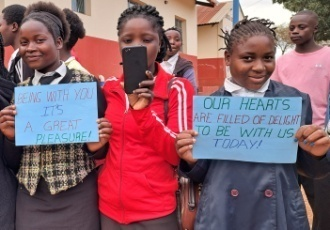 BEING WITH YOU
IT'S
A GREAT
PLEASURE!
OUR HEARTS
ARE FILLED OF DELIGHT
TO BE WITH US
TODAY!